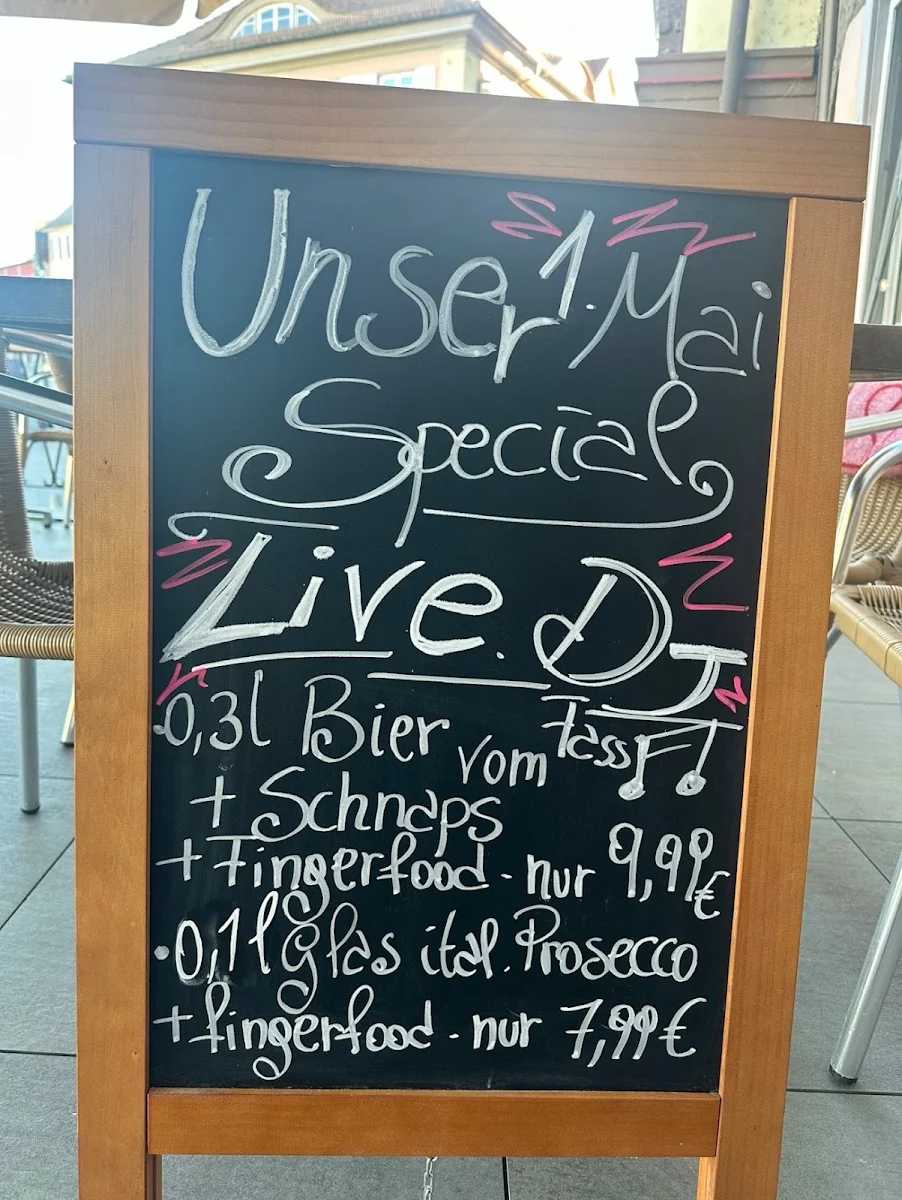 Unser 1. Mai
Special
Live DJ
·0,3l Bier vom Fass
+ Schnaps
+ Fingerfood - nur 9,99€
·0,1l Glas ital. Prosecco
+ fingerfood - nur 7,99€